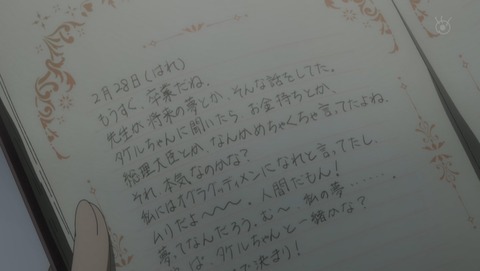 2月28日(はれ)
もうすぐ、卒業だね。
先生が将来の夢とか、そんな話をしてた。
タケルちゃんに聞いたら お金持ちとか、
総理大臣とかなんかめちゃくちゃ言ってたよね。
それ、本気なのかな?
私にはオグラグッディメンになれと言ってたし…
ムリだよ〜〜〜。人間だもん!
夢ってなんだろう。む〜 私の夢……。
ば タケルちゃんと一緒かな?
で決まり!